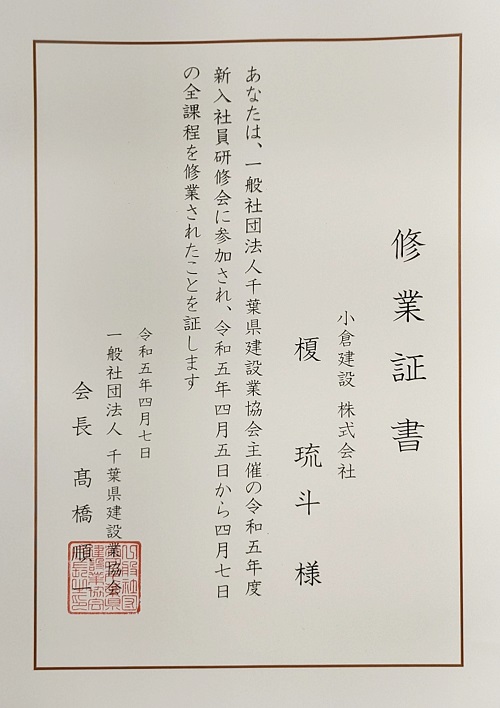 修業証書
小倉建設 株式会社
榎 琉斗 様
あなたは、一般社団法人千葉県建設業協会主催の令和五年度
新入社員研修会に参加され、令和五年四月五日から四月七日
の全課程を修業されたことを証します
令和五年四月七日
一般社団法人 千葉県建設業協会
会長 髙橋 順一